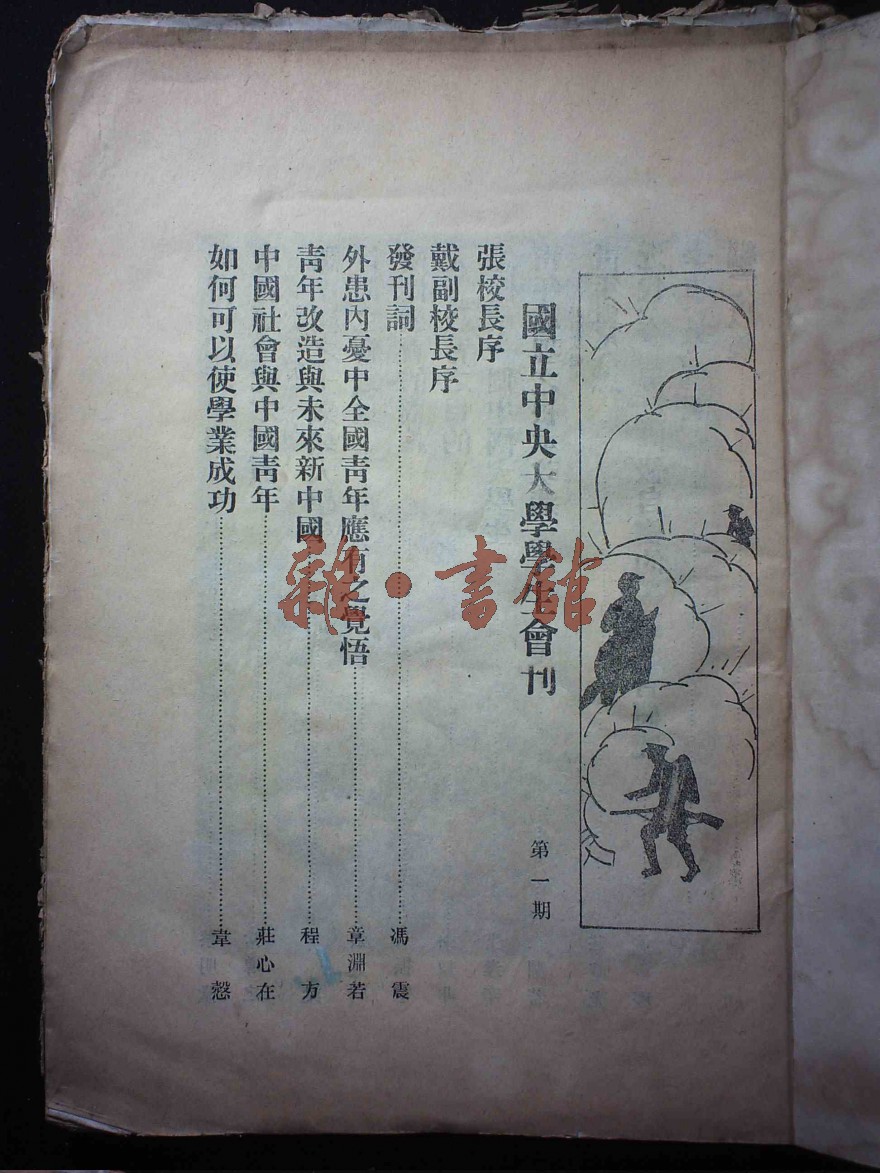 國立中央大學學生會刊
第一期
張校長序
戴副校長序
發刊詞 馮震
外患內憂中全國青年應有之覺悟 章淵若
青年改造與未來新中國 程方
中國社會與中國青年 莊心在
如何可以使學業成功 韋愨
雜·書館